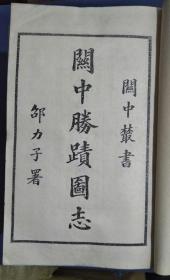 關中叢書
關中勝蹟圖志
邵力子署